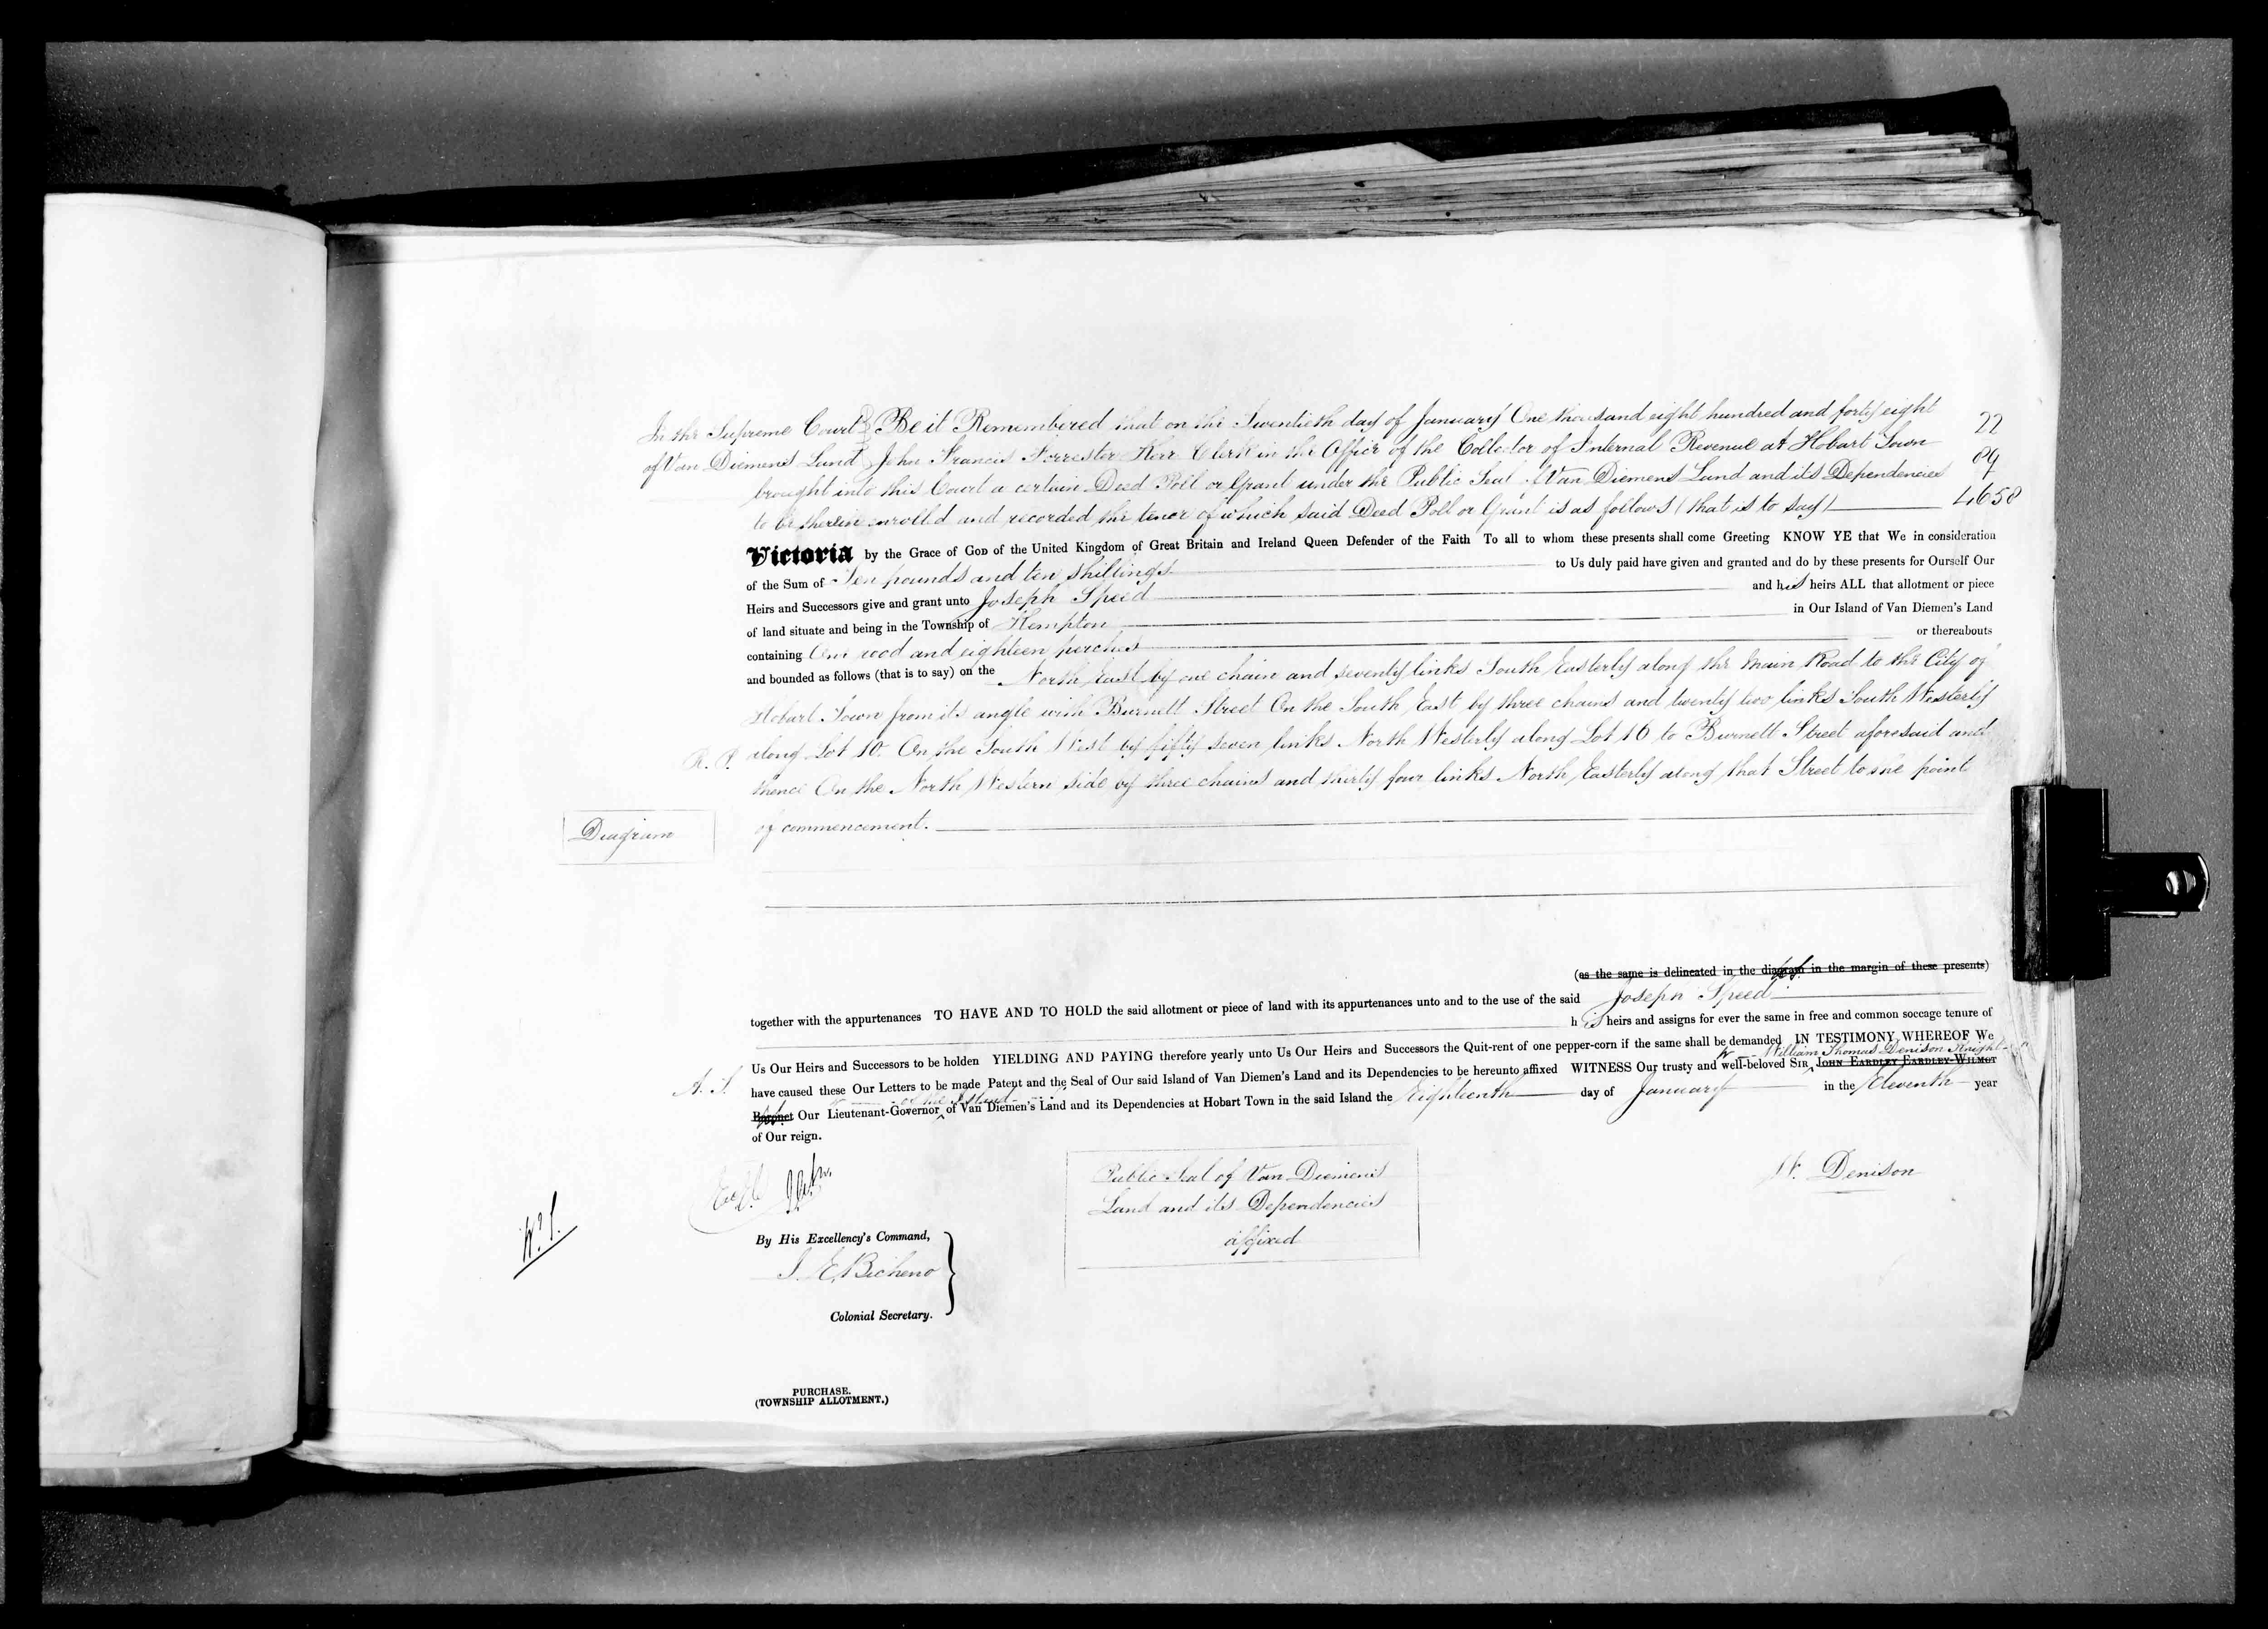 In the Supreme Court } Be it Remembered that on the Twentieth day of January One thousand eight hundred and forty eight 22
of Van Diemen's Land } John Francis Forrester Kerr Clerk in the Office of the Collector of Internal Revenue at Hobart Town 89
brought into this Court a certain Deed Poll or Grant under the Public Seal of Van Diemens Land and its Dependencies
to be therein enrolled and recorded the tenor of which said Deed Poll or Grant is as follows (that is to say) 4658
Victoria by the Grace of God of the United Kingdom of Great Britain and Ireland Queen Defender of the Faith To all to whom these presents shall come Greeting KNOW YE that We in consideration
of the Sum of Ten pounds and ten shillings to Us duly paid have given and granted and do by these presents for Ourself Our
Heirs and Successors give and grant unto Joseph Speed and his heirs ALL that allotment or piece
of land situate and being in the Township of Kempton in Our Island of Van Diemen's Land
containing One rood and eighteen perches or thereabouts
and bounded as follows (that is to say) on the North East by one chain and seventy links South Easterly along the Main Road to the City of
Hobart Town from its angle with Burnett Street On the South East by three chains and twenty two links South Westerly
R. P. along Lot 10 On the South West by fifty seven links North Westerly along Lot 16 to Burnett Street aforesaid and
thence On the North Western side by three chains and thirty four links North Easterly along that Street to the point
Diagram of commencement.
(as the same is delineated in the diagram in the margin of these presents)
together with the appurtenances TO HAVE AND TO HOLD the said allotment or piece of land with its appurtenances unto and to the use of the said Joseph Speed
his heirs and assigns for ever the same in free and common soccage tenure of
Us Our Heirs and Successors to be holden YIELDING AND PAYING therefore yearly unto Us Our Heirs and Successors the Quit-rent of one pepper-corn if the same shall be demanded IN TESTIMONY WHEREOF We
William Thomas Denison Knight
have caused these Our Letters to be made Patent and the Seal of Our said Island of Van Diemen's Land and its Dependencies to be hereunto affixed WITNESS Our trusty and well-beloved Sir John Eardley Eardley-Wilmot
of the Island
Baronet Our Lieutenant-Governor of Van Diemen's Land and its Dependencies at Hobart Town in the said Island the Eighteenth day of January in the Eleventh year
of Our reign.
W. Denison
Public Seal of Van Diemen's
Land and its Dependencies
affixed
By His Excellency's Command,
J. E. Bicheno
Colonial Secretary.
PURCHASE.
(TOWNSHIP ALLOTMENT.)